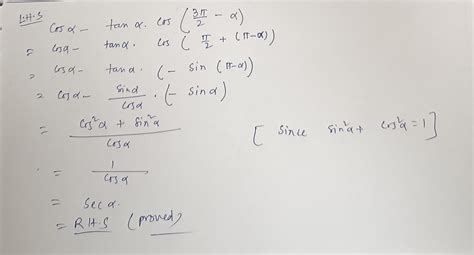 L.H.S
cosα - tanα. cos (3π/2 - α)
= cosα - tanα. cos (π/2 + (π-α))
= cosα - tanα. (- sin (π-α))
= cosα - sinα/cosα . (- sinα)
= cos²α + sin²α / cosα [ since sin²α + cos²α = 1 ]
= 1/cosα
= secα.
= R.H.S (proved)